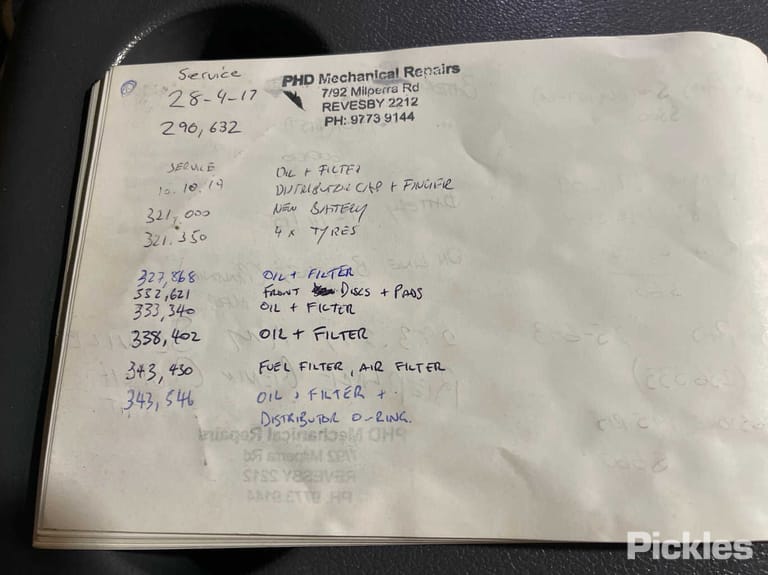 Service
28-4-17
290,632
PHD Mechanical Repairs
7/92 Milperra Rd
REVESBY 2212
PH: 9773 9144
SERVICE OIL + FILTER
10.10.19 DISTRIBUTOR CAP + FINGER
321,000 NEW BATTERY
321.350 4 x TYRES
327,868 OIL + FILTER
332,621 FRONT DISCS + PADS
333,340 OIL + FILTER
338,402 OIL + FILTER
343,430 FUEL FILTER, AIR FILTER
343,546 OIL, FILTER +
DISTRIBUTOR O-RING.
PHD Mechanical Repairs
7/92 Milperra Rd
REVESBY 2212
PH: 9773 9144
Pickles